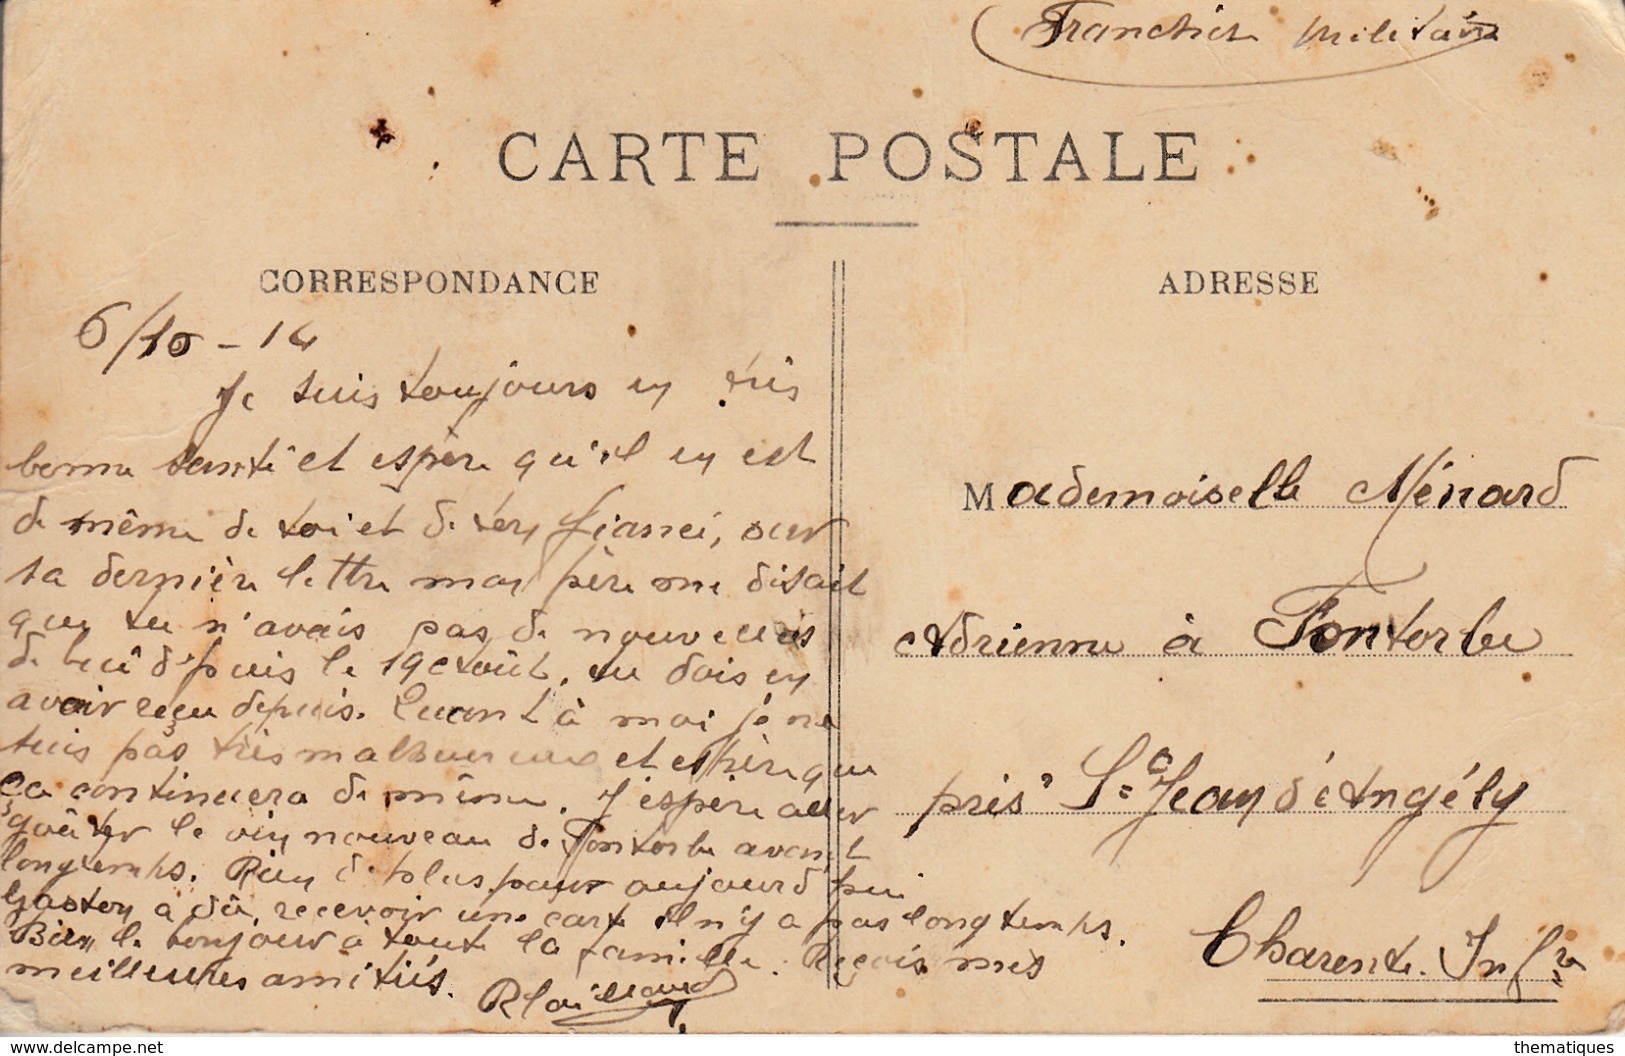 Franchise militaire
CARTE POSTALE
CORRESPONDANCE
ADRESSE
6/10-14
Je suis toujours en très
bonne santé et espère qu'il en est
de même de toi et de ton fiancé, sur
sa dernière lettre mon père me disait
que tu n'avais pas de nouvelles
de lui depuis le 19 Août, tu dois en
avoir reçu depuis. Quant à moi je ne
suis pas très malheureux et espère que
ça continuera de même. J'espère aller
goûter le vin nouveau de Fontorbe avant
longtemps. Rien de plus pour aujourd'hui
Gaston a dû recevoir une carte il n'y a pas longtemps.
Bien le bonjour à toute la famille. Reçois mes
meilleures amitiés.
Mademoiselle Ménard
Adrienne à Fontorbe
près St Jean d'Angély
Charente Infre
www.delcampe.net
thematiques